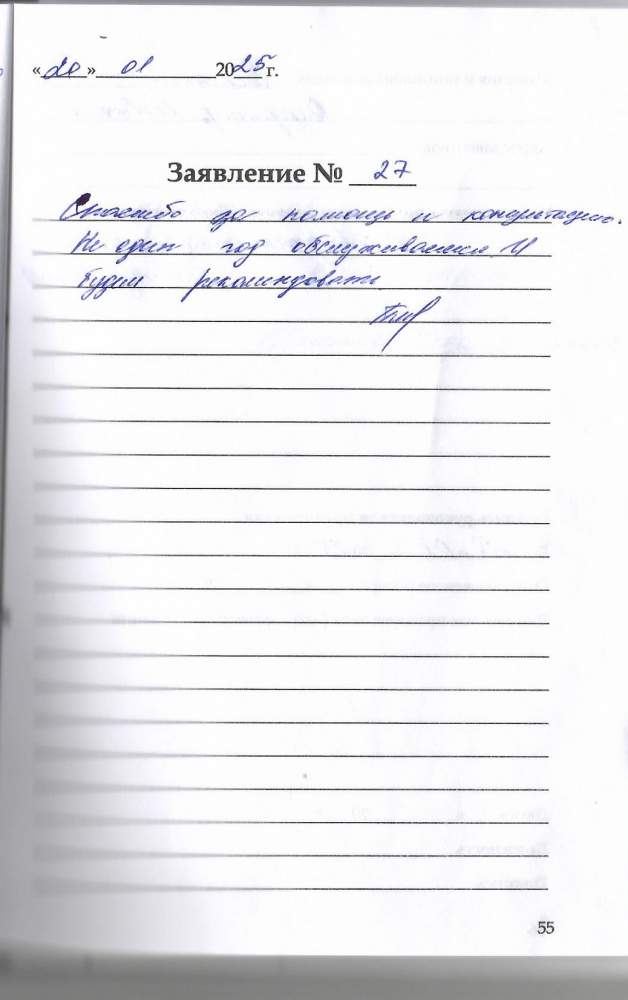 «20» 01 2025 г.
Заявление № 27
Спасибо за помощь и консультацию.
Не один год обслуживаемся и
будем рекомендовать
55